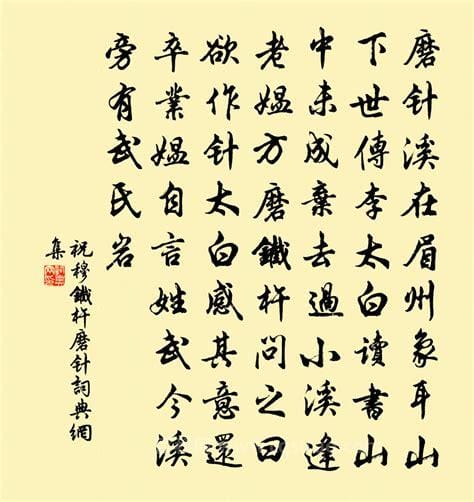 磨针溪在眉州象耳山
下世傳李太白讀書山
中未成棄去過小溪逢
老媪方磨鐵杵問之曰
欲作针太白感其意還
卒業媪自言姓武今溪
旁有武氏岩
祝穆鐵杵磨针詞典網
集